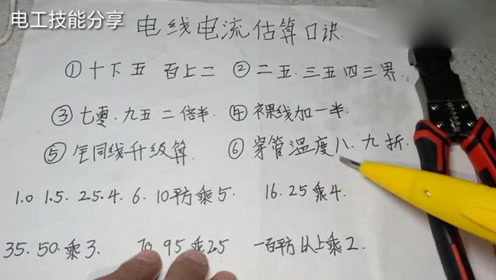 电工技能分享
电线电流估算口诀
① 十下五 百上二 ② 二五.三五四三界.
③ 七零.九五二倍半 ④ 裸线加一半.
⑤ 铜线升级算. ⑥ 穿管温度八.九折.
1.0 1.5. 2.5.4. 6. 10平方乘5. 16.25乘4.
35.50.乘3. 70.95乘25 一百平方以上乘2.